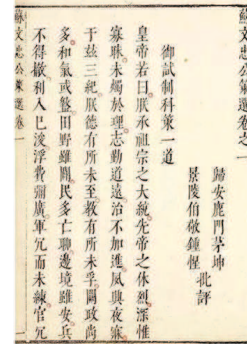 蘇文忠公策選卷之一
歸安鹿門茅坤
景陵伯敬鍾惺
批評
御試制科策一道
皇帝若曰朕承祖宗之大統先帝之休烈深惟
寡昧未燭於理志勤道遠治不加進夙興夜寐
于玆三紀朕德有所未至教有所未孚闕政尚
多和氣或盭田野雖闢民多亡聊邊境雖安兵
不得撤利入已浚浮費彌廣軍冗而未練官冗
蘇文忠公策選卷一